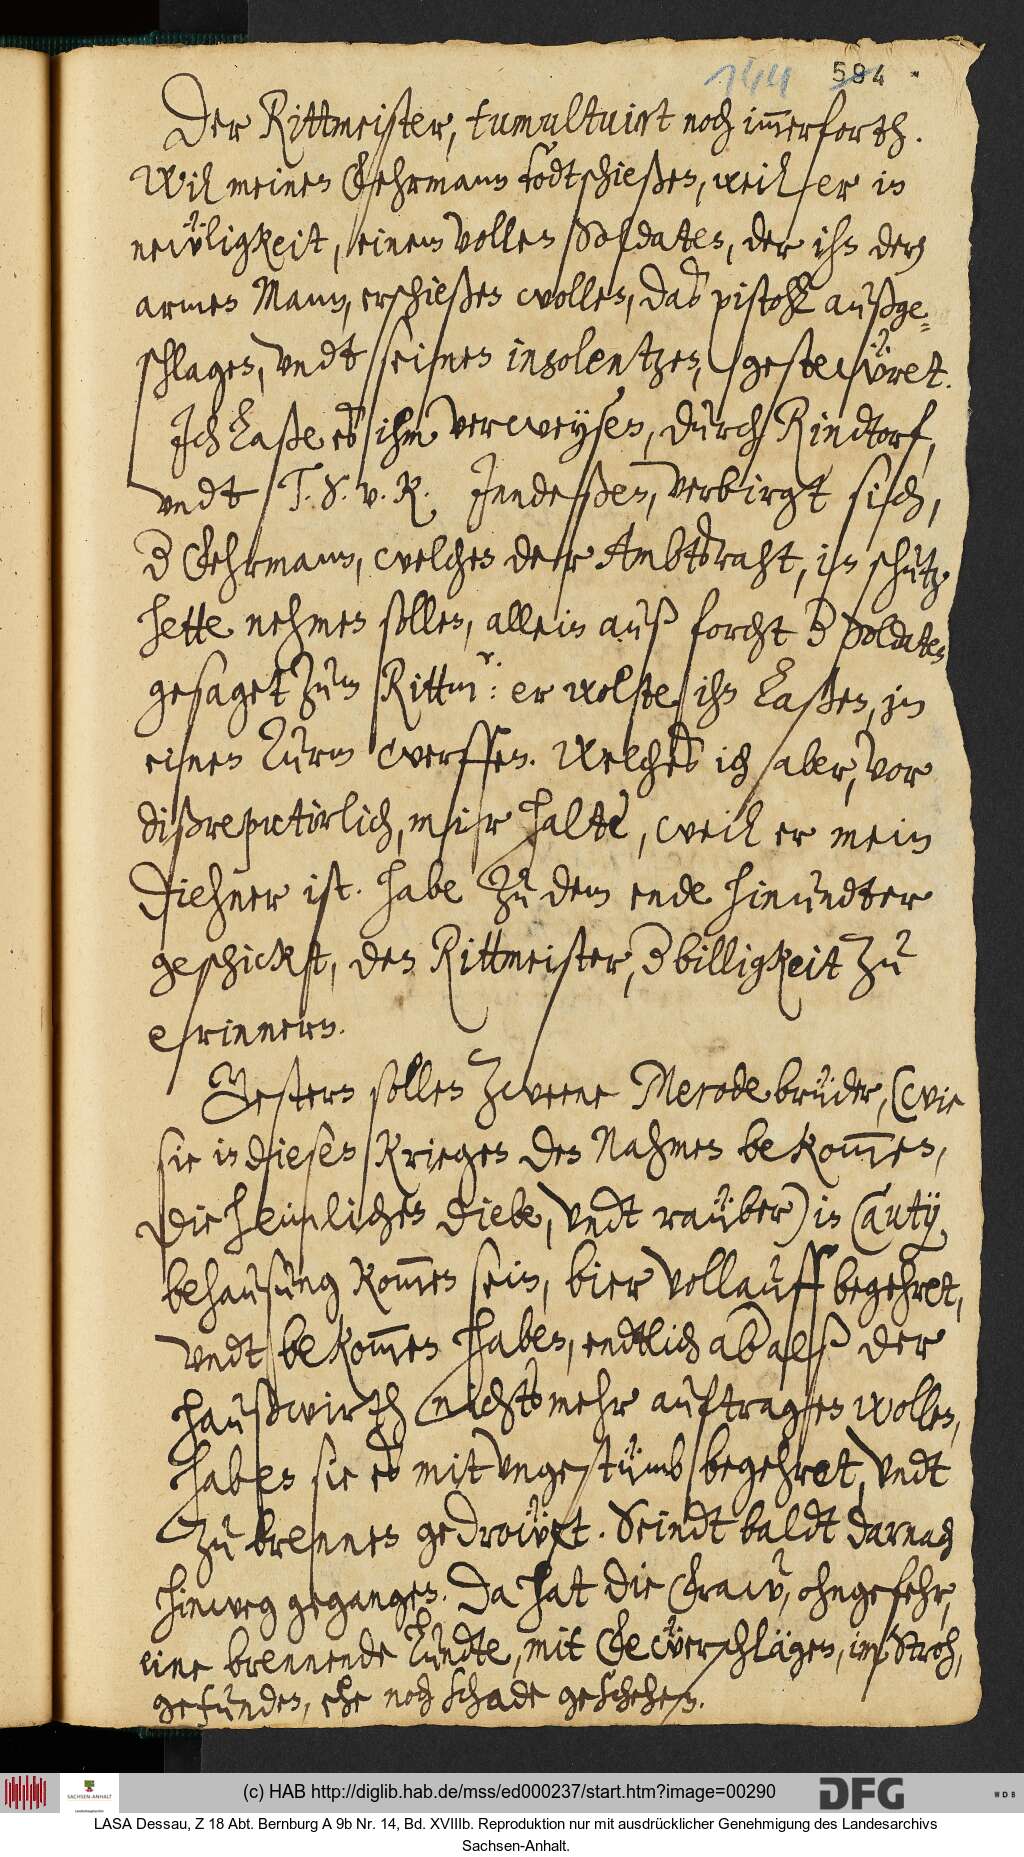 144 584
Der Rittmeister, tumultuirt noch im̄erforth.
Wil meinen Gehrmann todtschießen, weil er in
newligkeit, einem vollen Soldaten, der ihn den
armen Mann, erschießen wollen, das pistohl außge-
schlagen, undt seinen insolentzen, gestewret.
Ich laße es ihm verweysen, durch Rindtorf,
undt T. S. v. R. Inndeßen, verbirgt sich,
d Gehrmann, welchen deer Ambtsraht, in schutz
hette nehmen sollen, allein auß forcht d Soldaten
gesaget zum Rittmr: er wolste ihn laßen, in
einen Turm werffen. Welches ich aber, vor
dißreputirlich, mir halte, weil er mein
Diehner ist. habe zu dem ende hinundter
geschickt, den Rittmeister, d billigkeit zu
erinnern.
Gestern sollen zweene Merode brüder, (wie
sie in diesen Kriegen den Nahmen bekom̄en,
die heimlichen diebe, undt raüber) in Cautij
behausung kom̄en sein, bier vollauff begehret,
undt bekom̄en haben, endtlich ab alß der
haußwirth nichts mehr auftragen wollen,
haben sie es mit ungestümb begehret, undt
zu brennen gedrowet. Seindt baldt darnach
hinweg gegangen. Da hat die Fraw, ohngefehr,
eine brennende Lundte, mit Gewerschlägen, im Stroh,
gefunden, ehe noch schade geschehen.
(c) HAB http://diglib.hab.de/mss/ed000237/start.htm?image=00290
SACHSEN-ANHALT
DFG
WDB
LASA Dessau, Z 18 Abt. Bernburg A 9b Nr. 14, Bd. XVIIIb. Reproduktion nur mit ausdrücklicher Genehmigung des Landesarchivs
Sachsen-Anhalt.